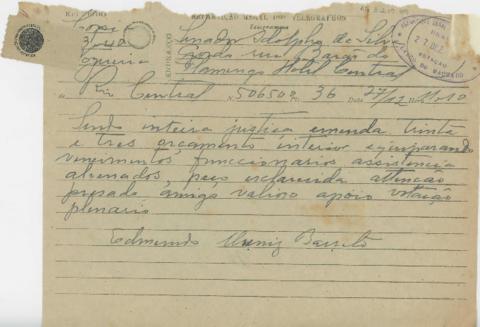 REPARTIÇÃO GERAL DOS TELEGRAPHOS
Telegramma
Senador Adolpho da Silva
Gordo rua Barão do
Flamengo Hotel Central
Rio Central N. 506509 Pls. 36 Data 27/12 Hora 11.010
Sendo inteira justiça emenda trinta
e tres orçamento interior equiparando
vencimentos funccionarios assistencia
alienados, peço esclarecida attenção
presado amigo valioso apoio votação
plenario
Edmundo Muniz Barreto